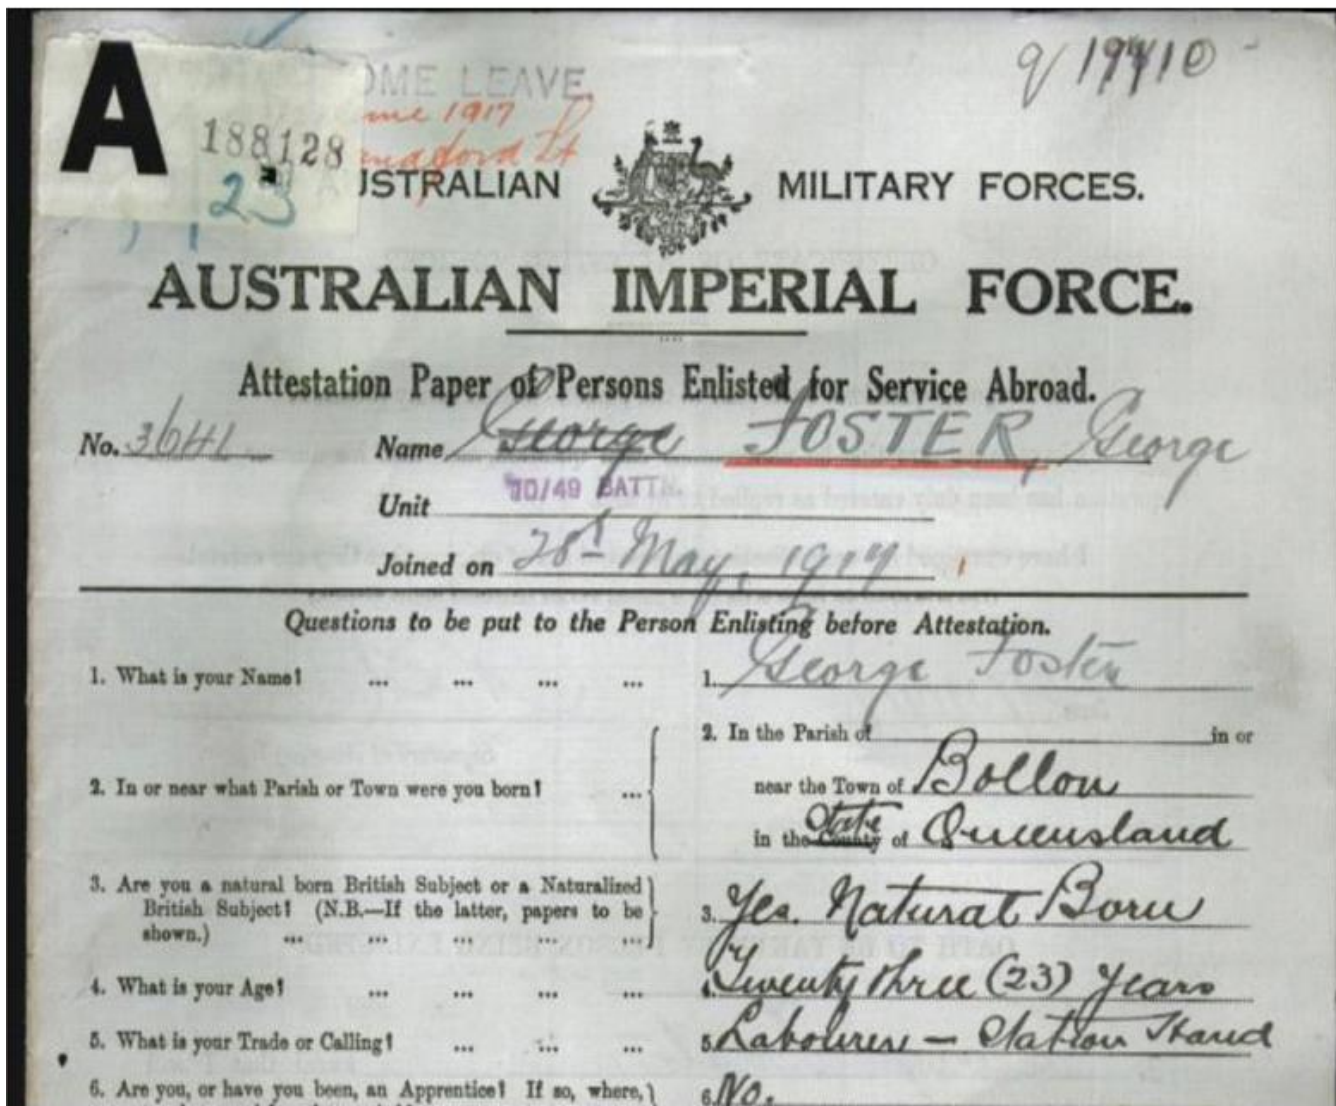 A
188128
23
OME LEAVE.
1917
AUSTRALIAN MILITARY FORCES.
AUSTRALIAN IMPERIAL FORCE.
Attestation Paper of Persons Enlisted for Service Abroad.
No. Name George FOSTER, George
Unit 10/49 BATTN.
Joined on May, 1917
Questions to be put to the Person Enlisting before Attestation.
1. What is your Name? ... ... ... ... 1. George Foster
2. In the Parish of in or
2. In or near what Parish or Town were you born? ... near the Town of Bollon
in the County State of Queensland
3. Are you a natural born British Subject or a Naturalized
British Subject? (N.B.—If the latter, papers to be
shown.) ... ... ... ... ... 3. Yes. Natural Born
4. What is your Age? ... ... ... ... 4. Twenty three (23) Years
5. What is your Trade or Calling? ... ... ... 5. Labourer — Station Hand
6. Are you, or have you been, an Apprentice? If so, where, 6. No.